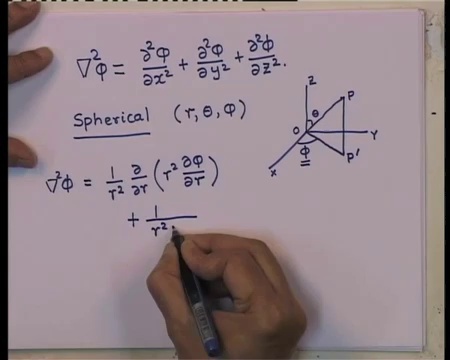 ∇²Φ = ∂²Φ/∂x² + ∂²Φ/∂y² + ∂²Φ/∂z².
Spherical (r, θ, φ)
Z
P
θ
O
Y
φ
P'
X
∇²Φ = 1/r² ∂/∂r (r² ∂Φ/∂r)
+ 1/r²